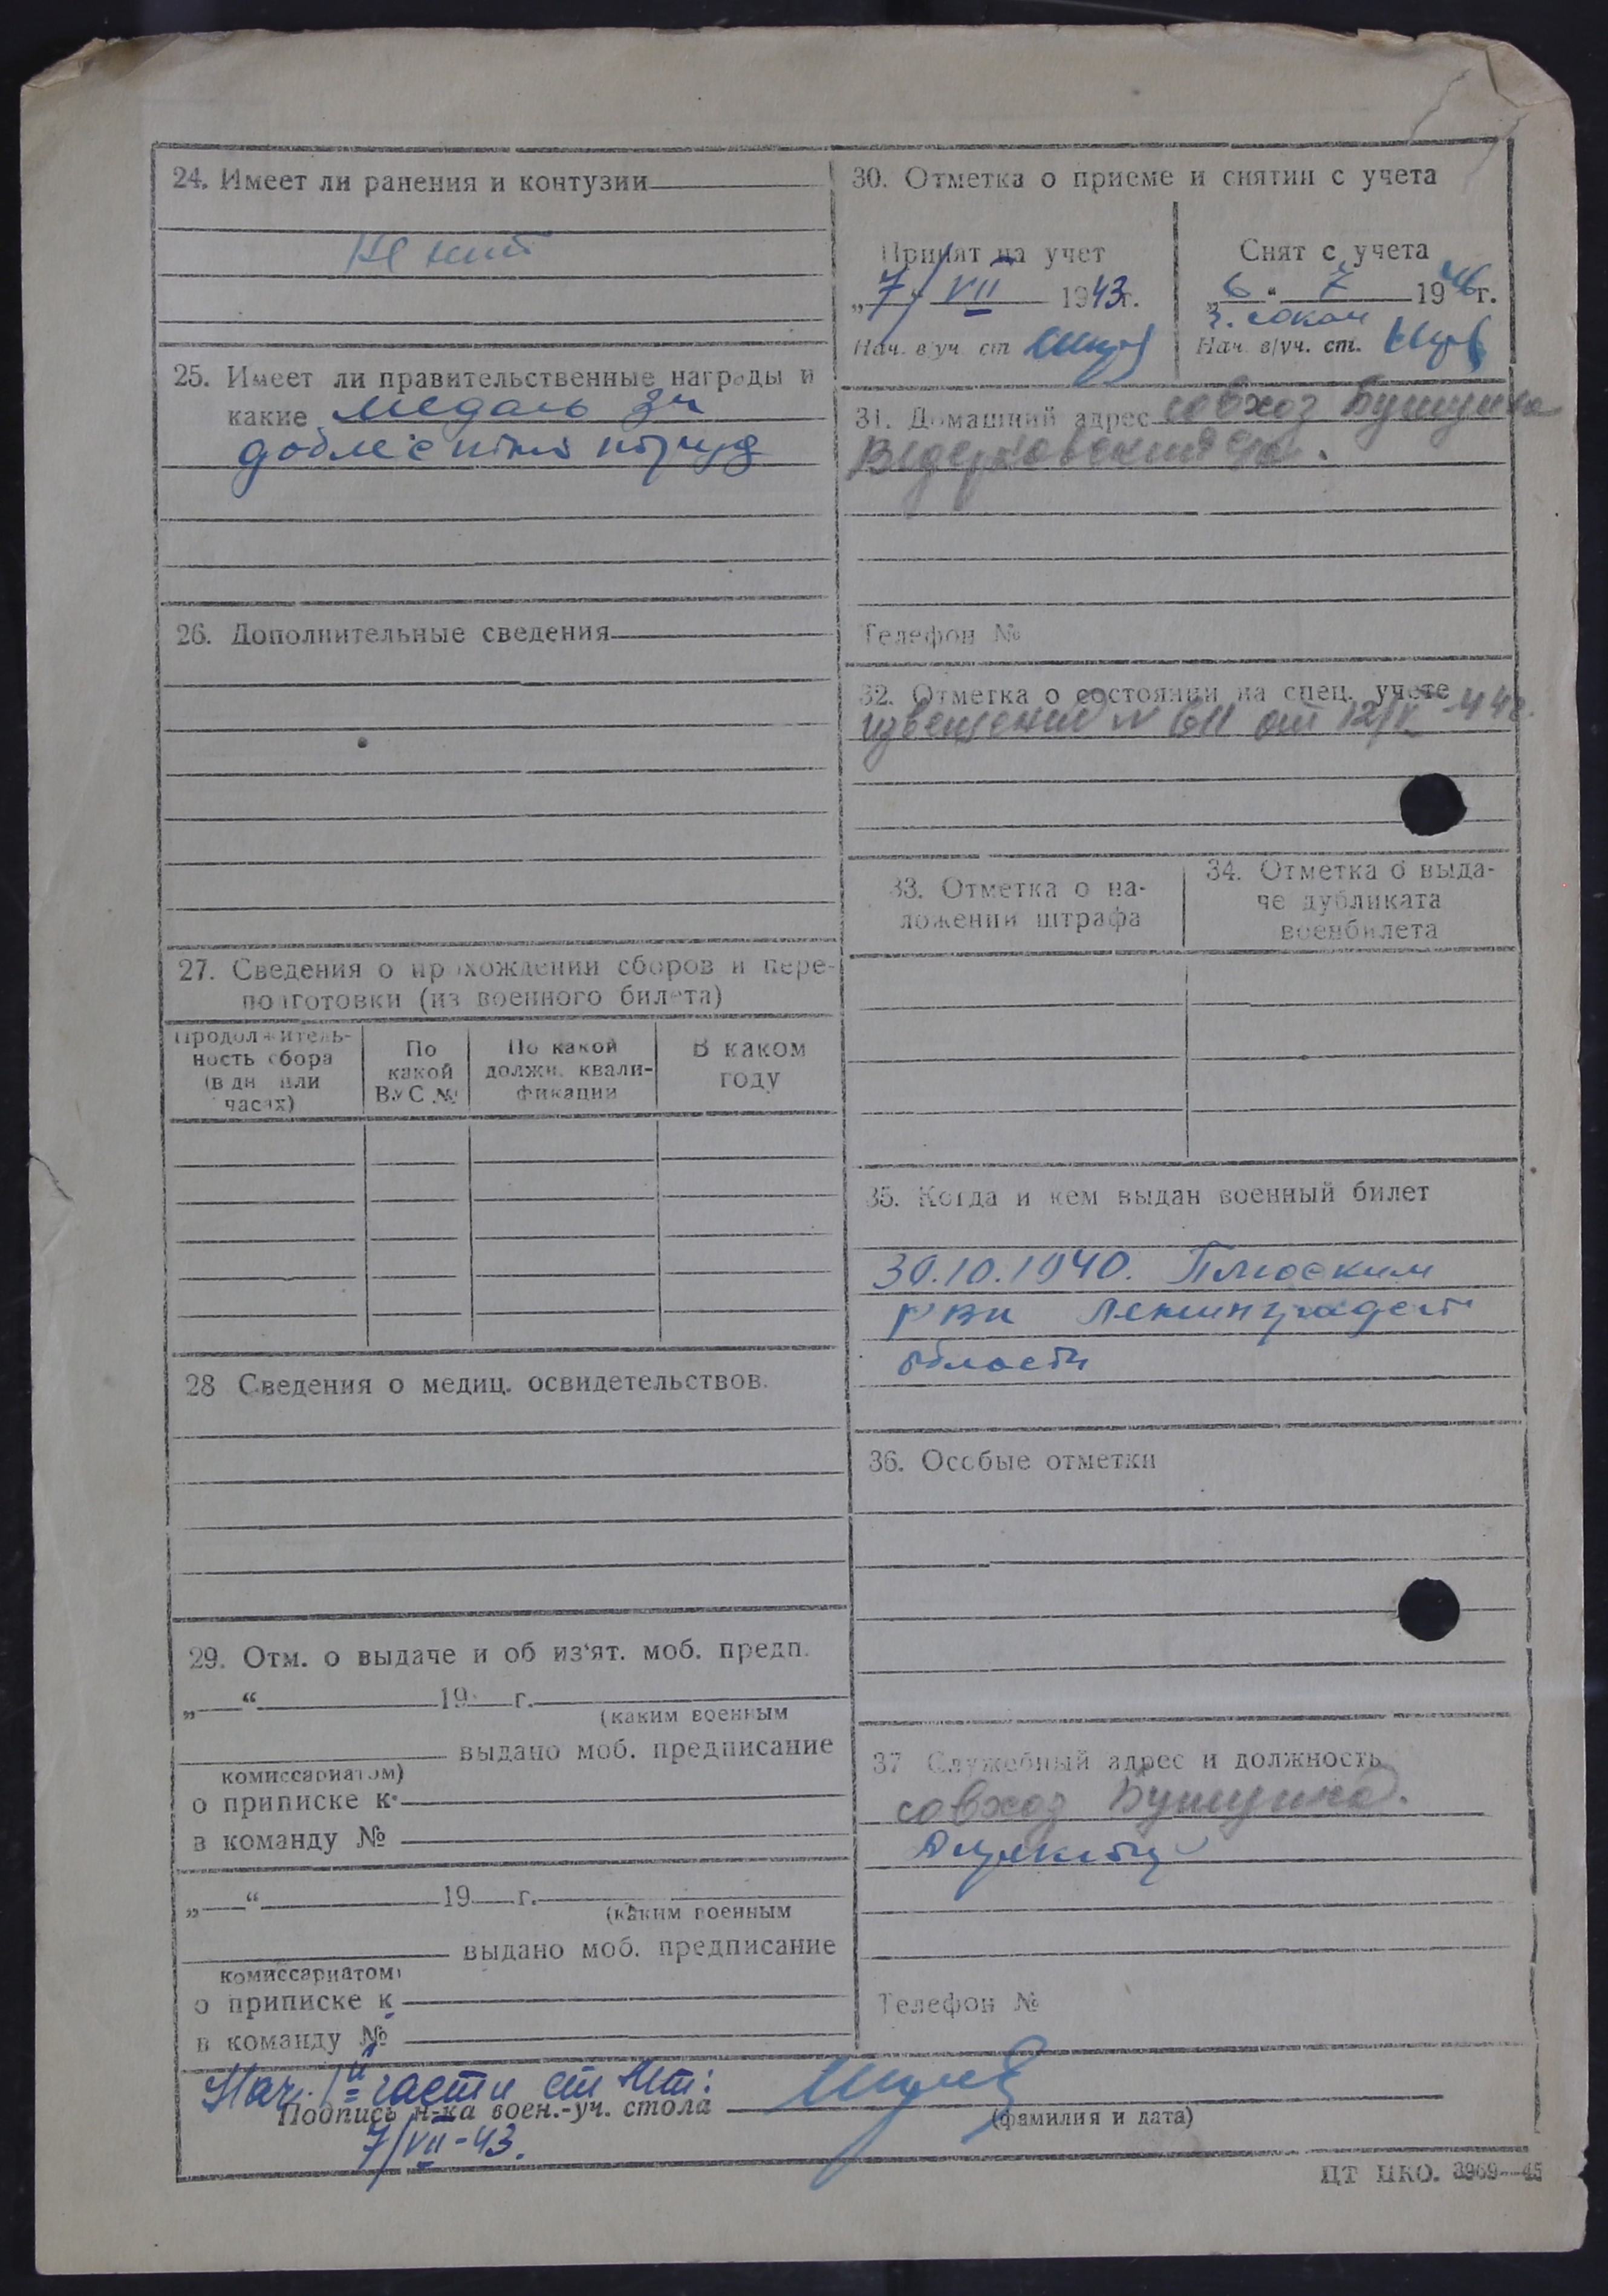 24. Имеет ли ранения и контузии
25. Имеет ли правительственные награды и
какие медаль за
доблестный труд
26. Дополнительные сведения
27. Сведения о прохождении сборов и пере-
подготовки (из военного билета)
Продолжитель-
ность сбора
(в дн или
часах)
По
какой
ВУС №
По какой
должн. квали-
фикации
В каком
году
28 Сведения о медиц. освидетельствов.
29. Отм. о выдаче и об из'ят. моб. предп.
„ “ 19 г.
(каким военным
выдано моб. предписание
комиссариатом)
о приписке к
в команду №
„ “ 19 г.
(каким военным
выдано моб. предписание
комиссариатом)
о приписке к
в команду №
30. Отметка о приеме и снятии с учета
Принят на учет
„7“ VII 1943г.
Нач. в/уч. ст
Снят с учета
„6“ 7 1946г.
Нач. в/уч. ст.
31. Домашний адрес совхоз
Телефон №
32. Отметка о состоянии на спец. учете
извещение № 611 от
33. Отметка о на-
ложении штрафа
34. Отметка о выда-
че дубликата
военбилета
35. Когда и кем выдан военный билет
30.10.1940. Плюским
РВК Ленинградск
области
36. Особые отметки
37 Служебный адрес и должность
совхоз
Директор
Телефон №
Нач. части
Подпись н-ка воен.-уч. стола
(фамилия и дата)
7/VII-43.
ЦТ НКО. 3969—45